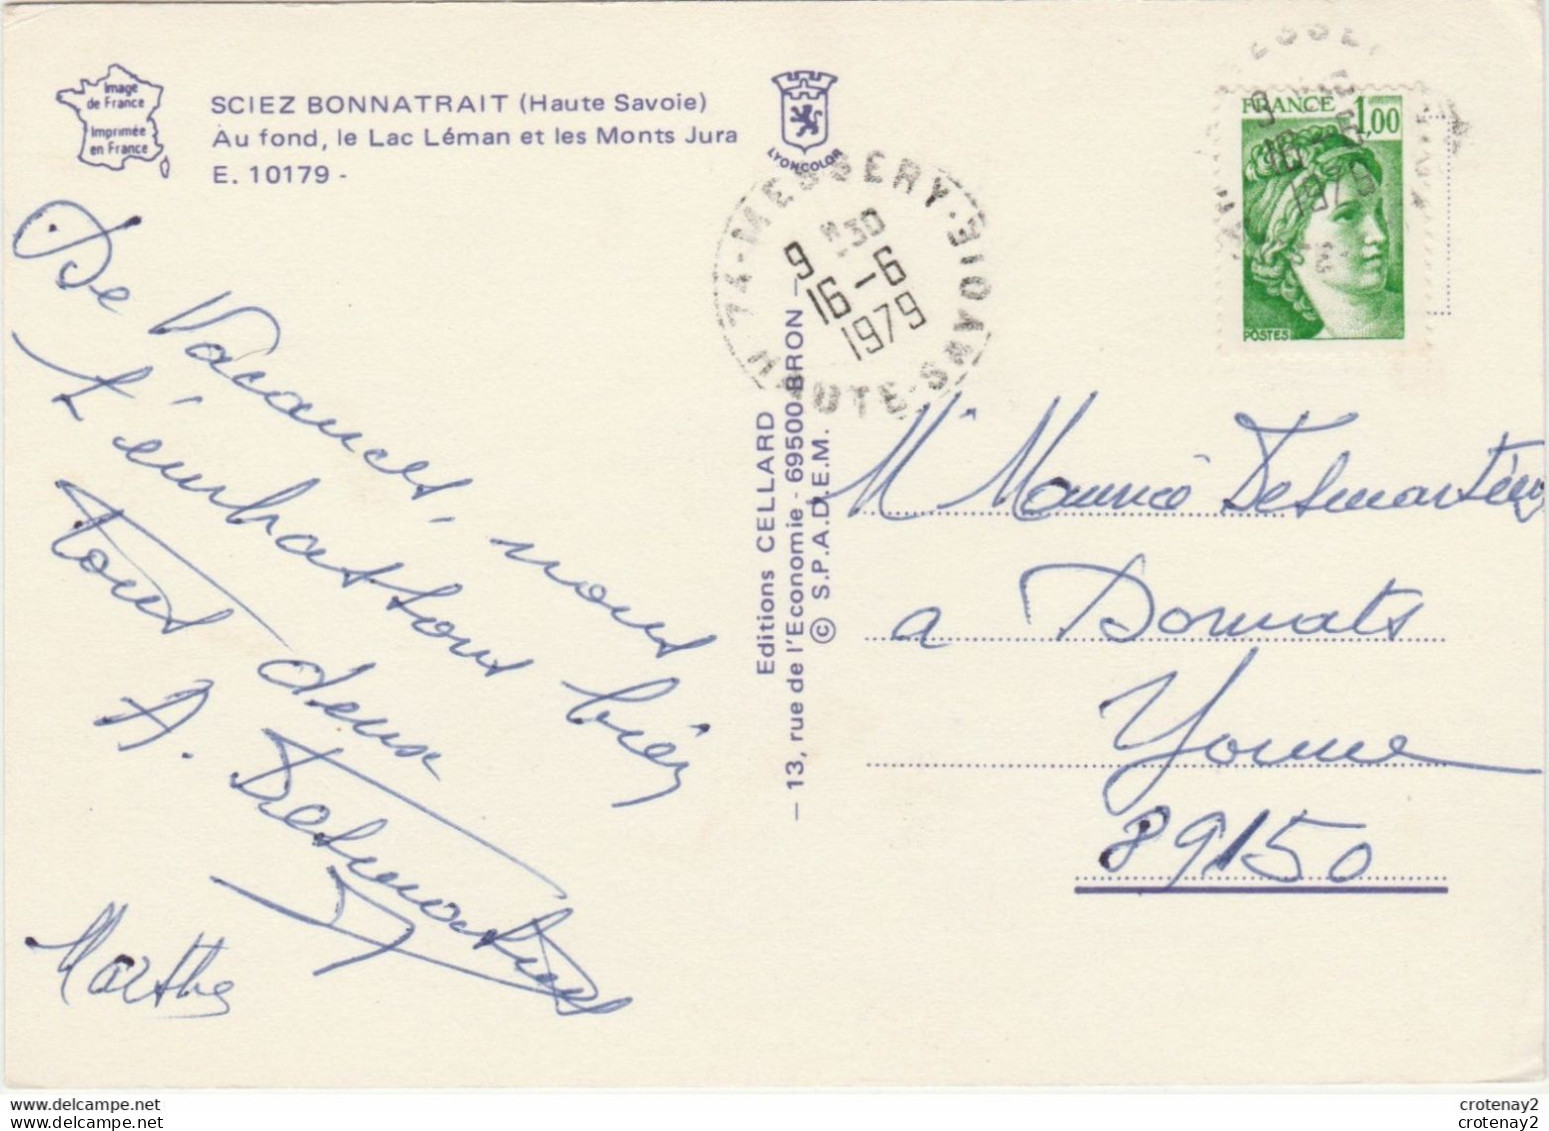 Image
de France
Imprimée
en France
SCIEZ BONNATRAIT (Haute Savoie)
Au fond, le Lac Léman et les Monts Jura
E. 10179 -
LYONCOLOR
De Vacances, nous
t'embrassons bien
tous deux
A. Desmartin
Marthe
Editions CELLARD
— 13, rue de l'Economie - 69500 BRON —
© S.P.A.D.E.M.
74-MESSERY-HAUTE-SAVOIE
9 H30
16-6
1979
FRANCE 1,00
POSTES
9
16-6
1979
Mr Maurice
a Dormats
Yonne
89150
crotenay2
crotenay2
crotenay2
crotenay2